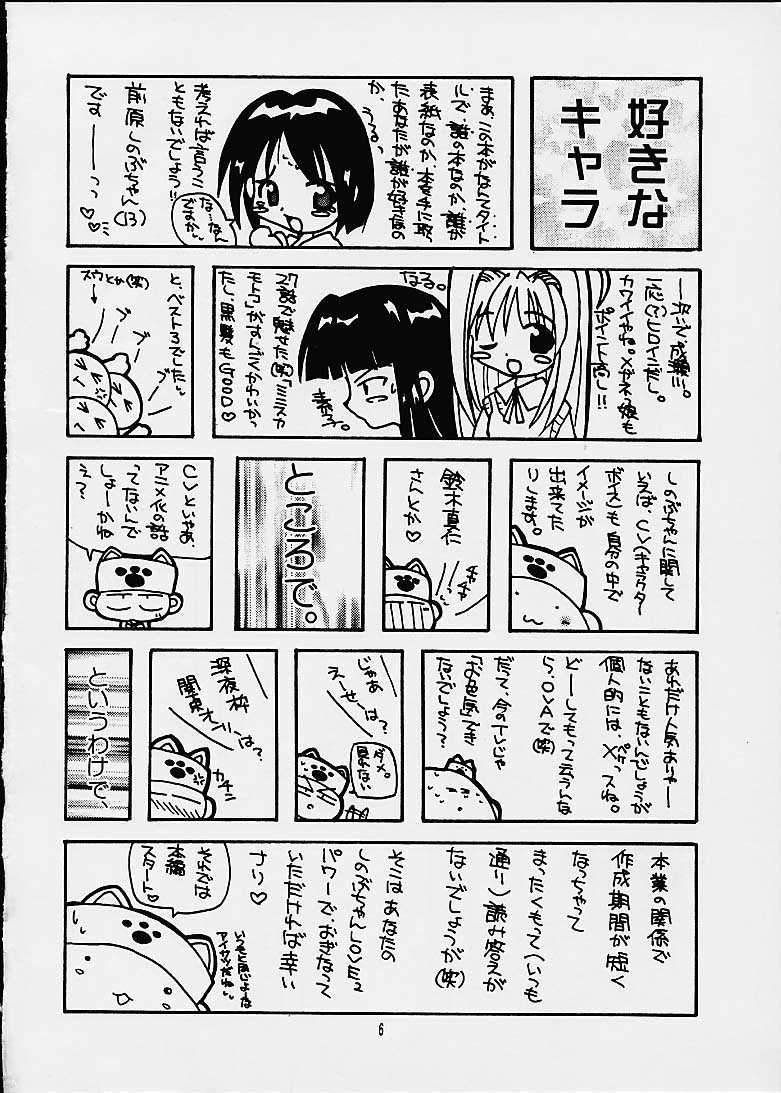 好きな
キャラ
まぁ、この本がなんてタイト
ルで、誰の本なのか、誰が
表紙なのか、本を手に取っ
たあなたが誰が好きなの
か、
うるっ
考えれば言うこ
ともないでしょう!!
な…なん
ですか、
前原しのぶちゃん(13)
でーーーっっ♡♡
一応(?)ヒロインだし。
カワイイやね。メガネっ娘も
ポイント高し!!
なる。
7話で魅せた(笑)「ミニスカ
モトコ」がすんげくかわいかっ
たし、黒髪もGOOD♡
素子。
と、ベスト3でした。
スウとか(笑)
ブー
ブー
ブー
しのぶちゃんに関して
いえば、CV(キャラクター
ボイス)も自分の中で
イメージが
出来てた
りします。
鈴木真仁
さんとか♡
ところで。
CVといやぁ、
アニメ化の話
ってないんで
しょーかね
ぇ?
あれだけ人気ありゃー
ないこともないんでしょうが
個人的には、
どーーしてもって云うんな
ら、OVAで(笑)
だって、今のTVじゃ
「お色気」でき
ないでしょう?
じゃあ
えーせーは?
ダメ。
見れない
深夜枠
関東オンリーは?
カチン
というわけで、
本業の関係で
作成期間が短く
なっちゃって
まったくもって(いつも
通り)読み答えが
ないでしょうが(笑)
そこはあなたの
しのぶちゃんLOVE2
パワーズでおぎなって
いただければ幸い
ナリ♡
それでは
本編
スタート♡
いつもと同じよーな
アイサツだねぃ
6